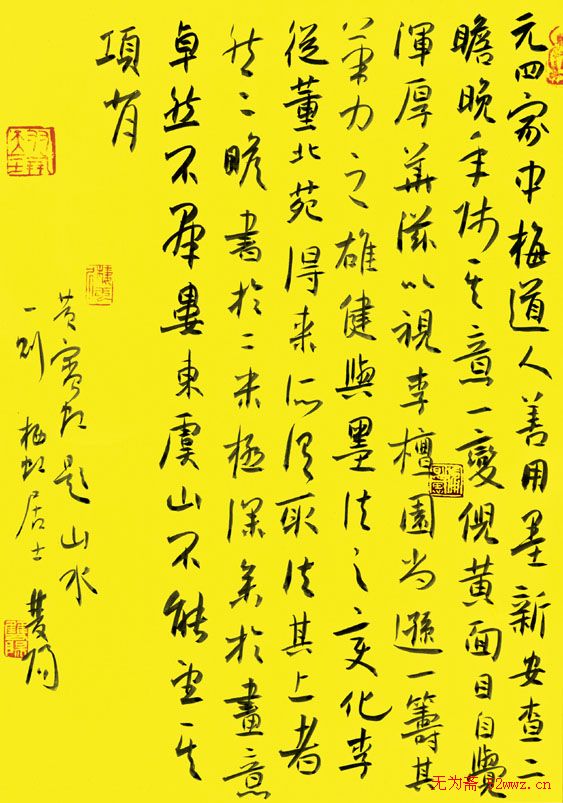 元四家中梅道人善用墨新安查二
瞻晚年師其意一變倪黃面目自覺
渾厚華滋以視李檀園尚遜一籌其
筆力之雄健與墨法之变化李
從董北苑得来所謂取法其上者
然二瞻書於二米極深於畫意
卓然不群婁東虞山不能望其
項背
黃賓虹題山水
一則 梅虹居士
无为斋.52wwz.cn